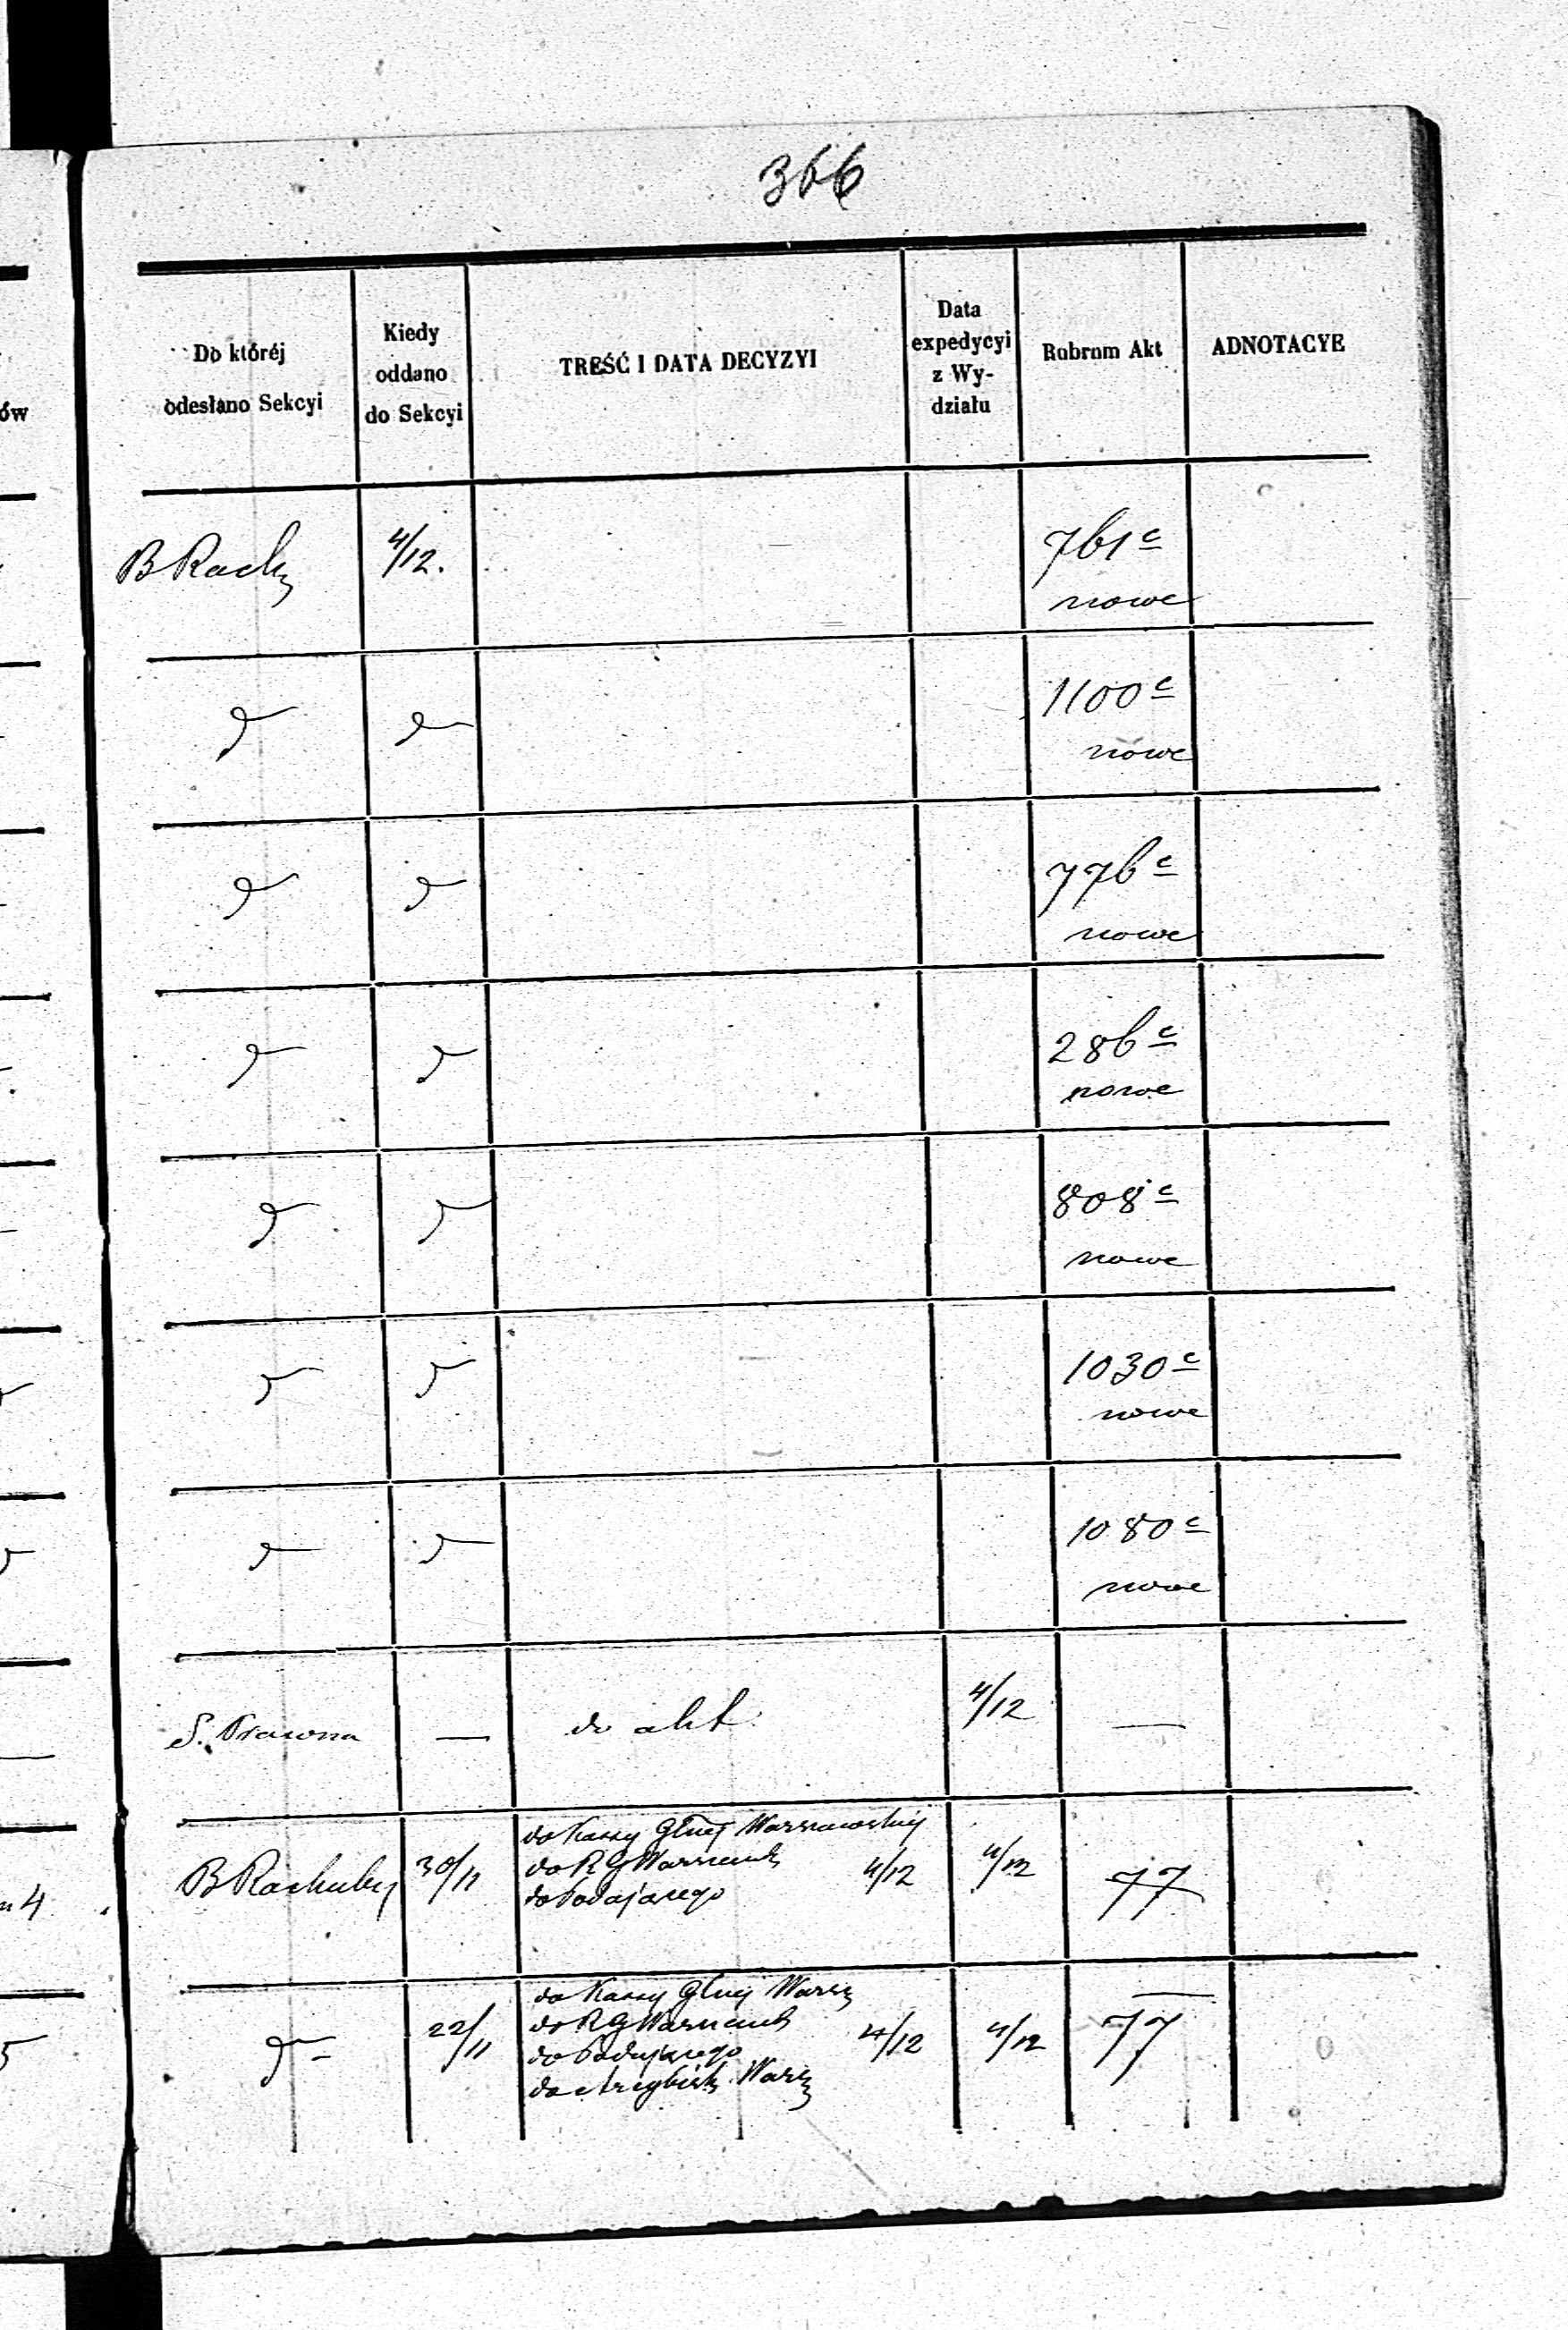 366
Do któréj odesłano Sekcyi
Kiedy oddano do Sekcyi
TREŚĆ I DATA DECYZYI
Data expedycyi z Wydziału
Rubrum Akt
ADNOTACYE
ów
B Rachy 4/12. 761 c
nowe
1100 c
nowe
776 c
nowe
286 c
nowe
808 c
nowe
1030 c
nowe
1080 c
nowe
S. Prawna — do akt 4/12 —
do Kassy Głnej Warszawskiej
B Rachuby 30/11 do R G Warszawsk 4/12 4/12 77
do Podającego
4
do Kassy Głnej Warsz
22/11 do R G Warszawsk 4/12 4/12 77
do Podającego
do Warsz
5